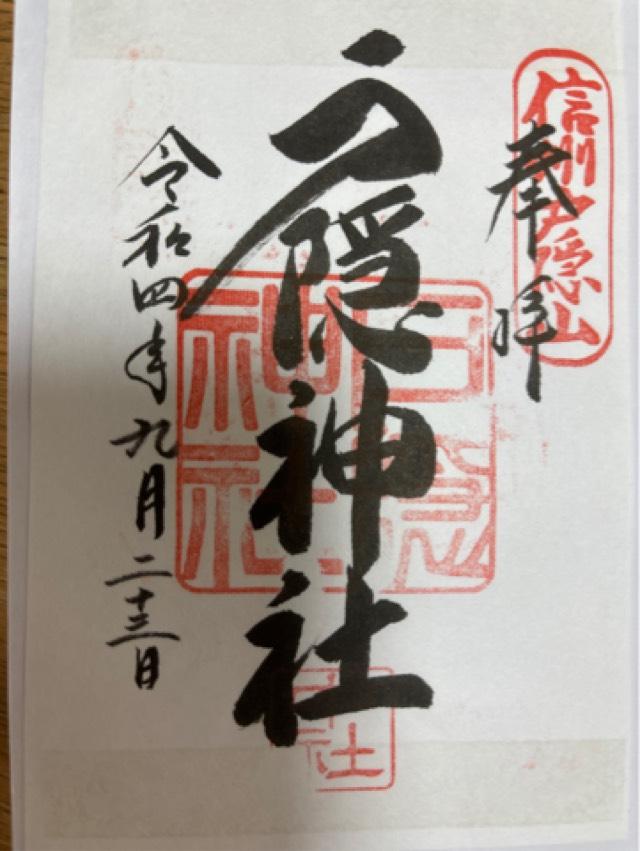 信州戸隠山
奉拝
戸隠神社
戸隠神社
令和四年九月二十三日